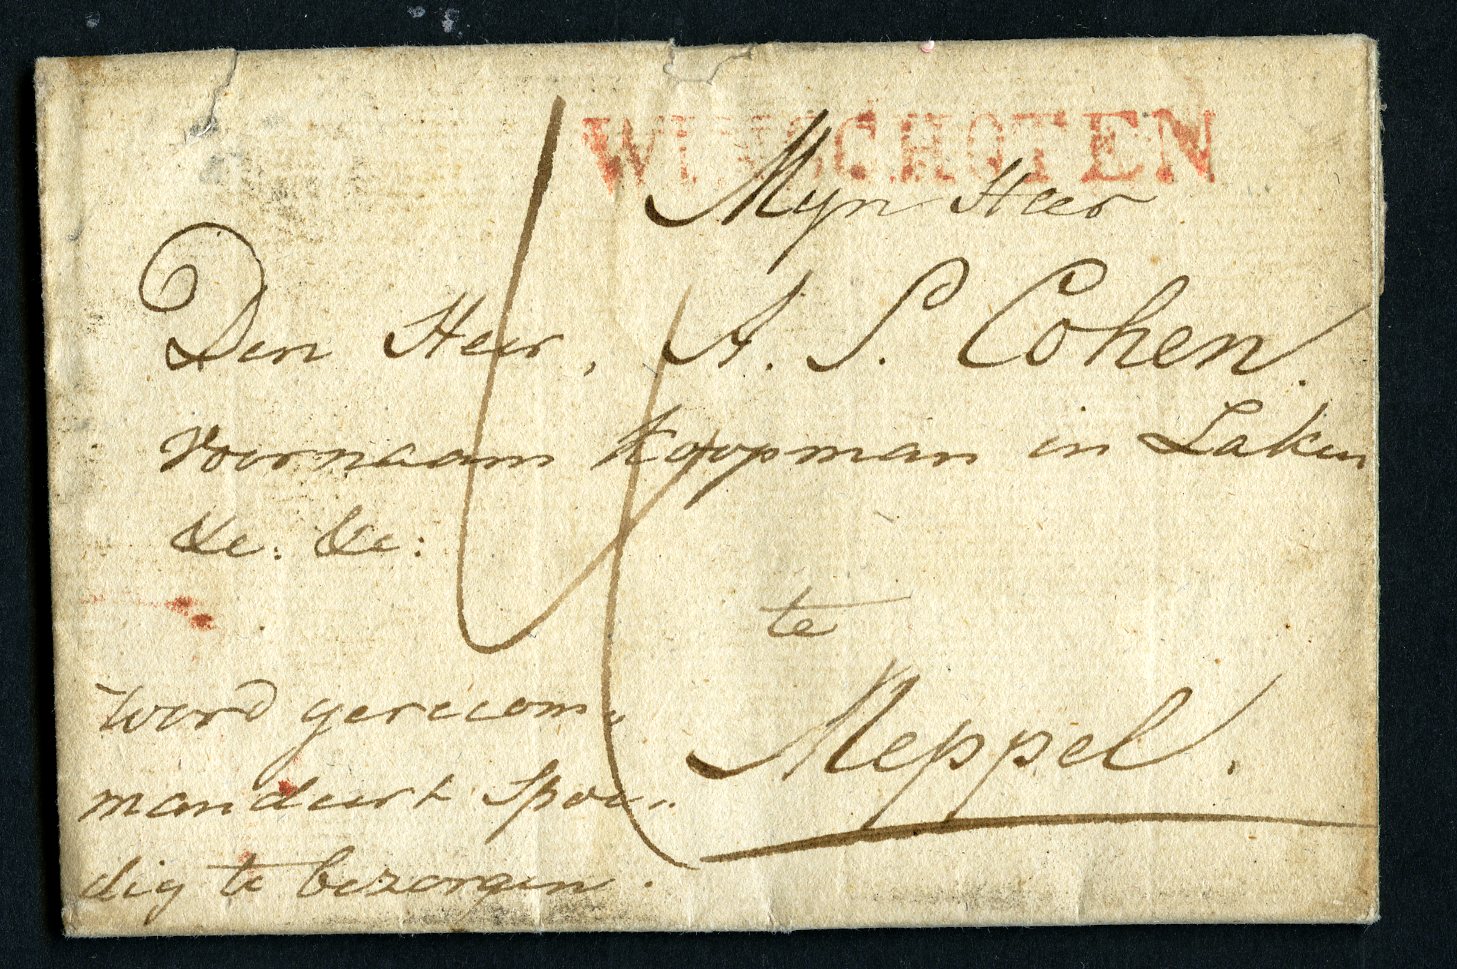 WINSCHOTEN
Myn Heer
Den Heer, A. S. Cohen.
voornaam Koopman in Laken
&c: &c:
te
Meppel.
word gerecom„
mandeert Spoe„
dig te bezorgen.